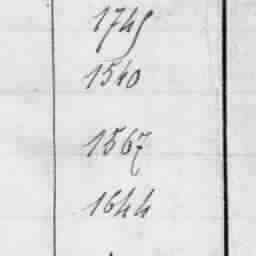 1745
1540
1567
1644